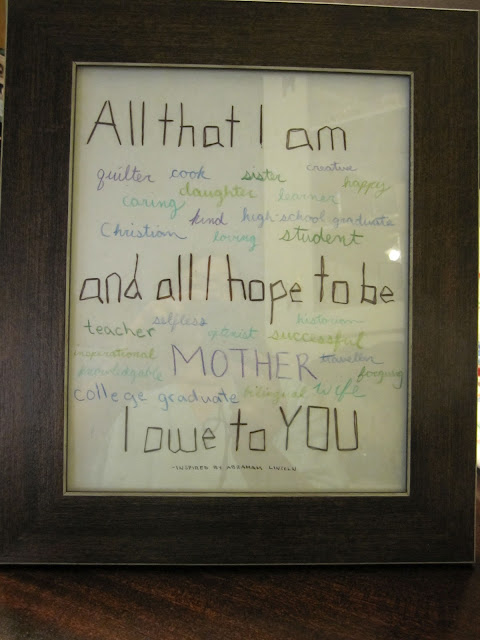 All that I am
quilter cook sister creative
daughter learner happy
caring
kind high-school graduate
Christian loving student
and all I hope to be
selfless historian
teacher successful
inspirational MOTHER traveller
knowledgable forgiving
college graduate bilingual wife
I owe to YOU
-INSPIRED BY ABRAHAM LINCOLN